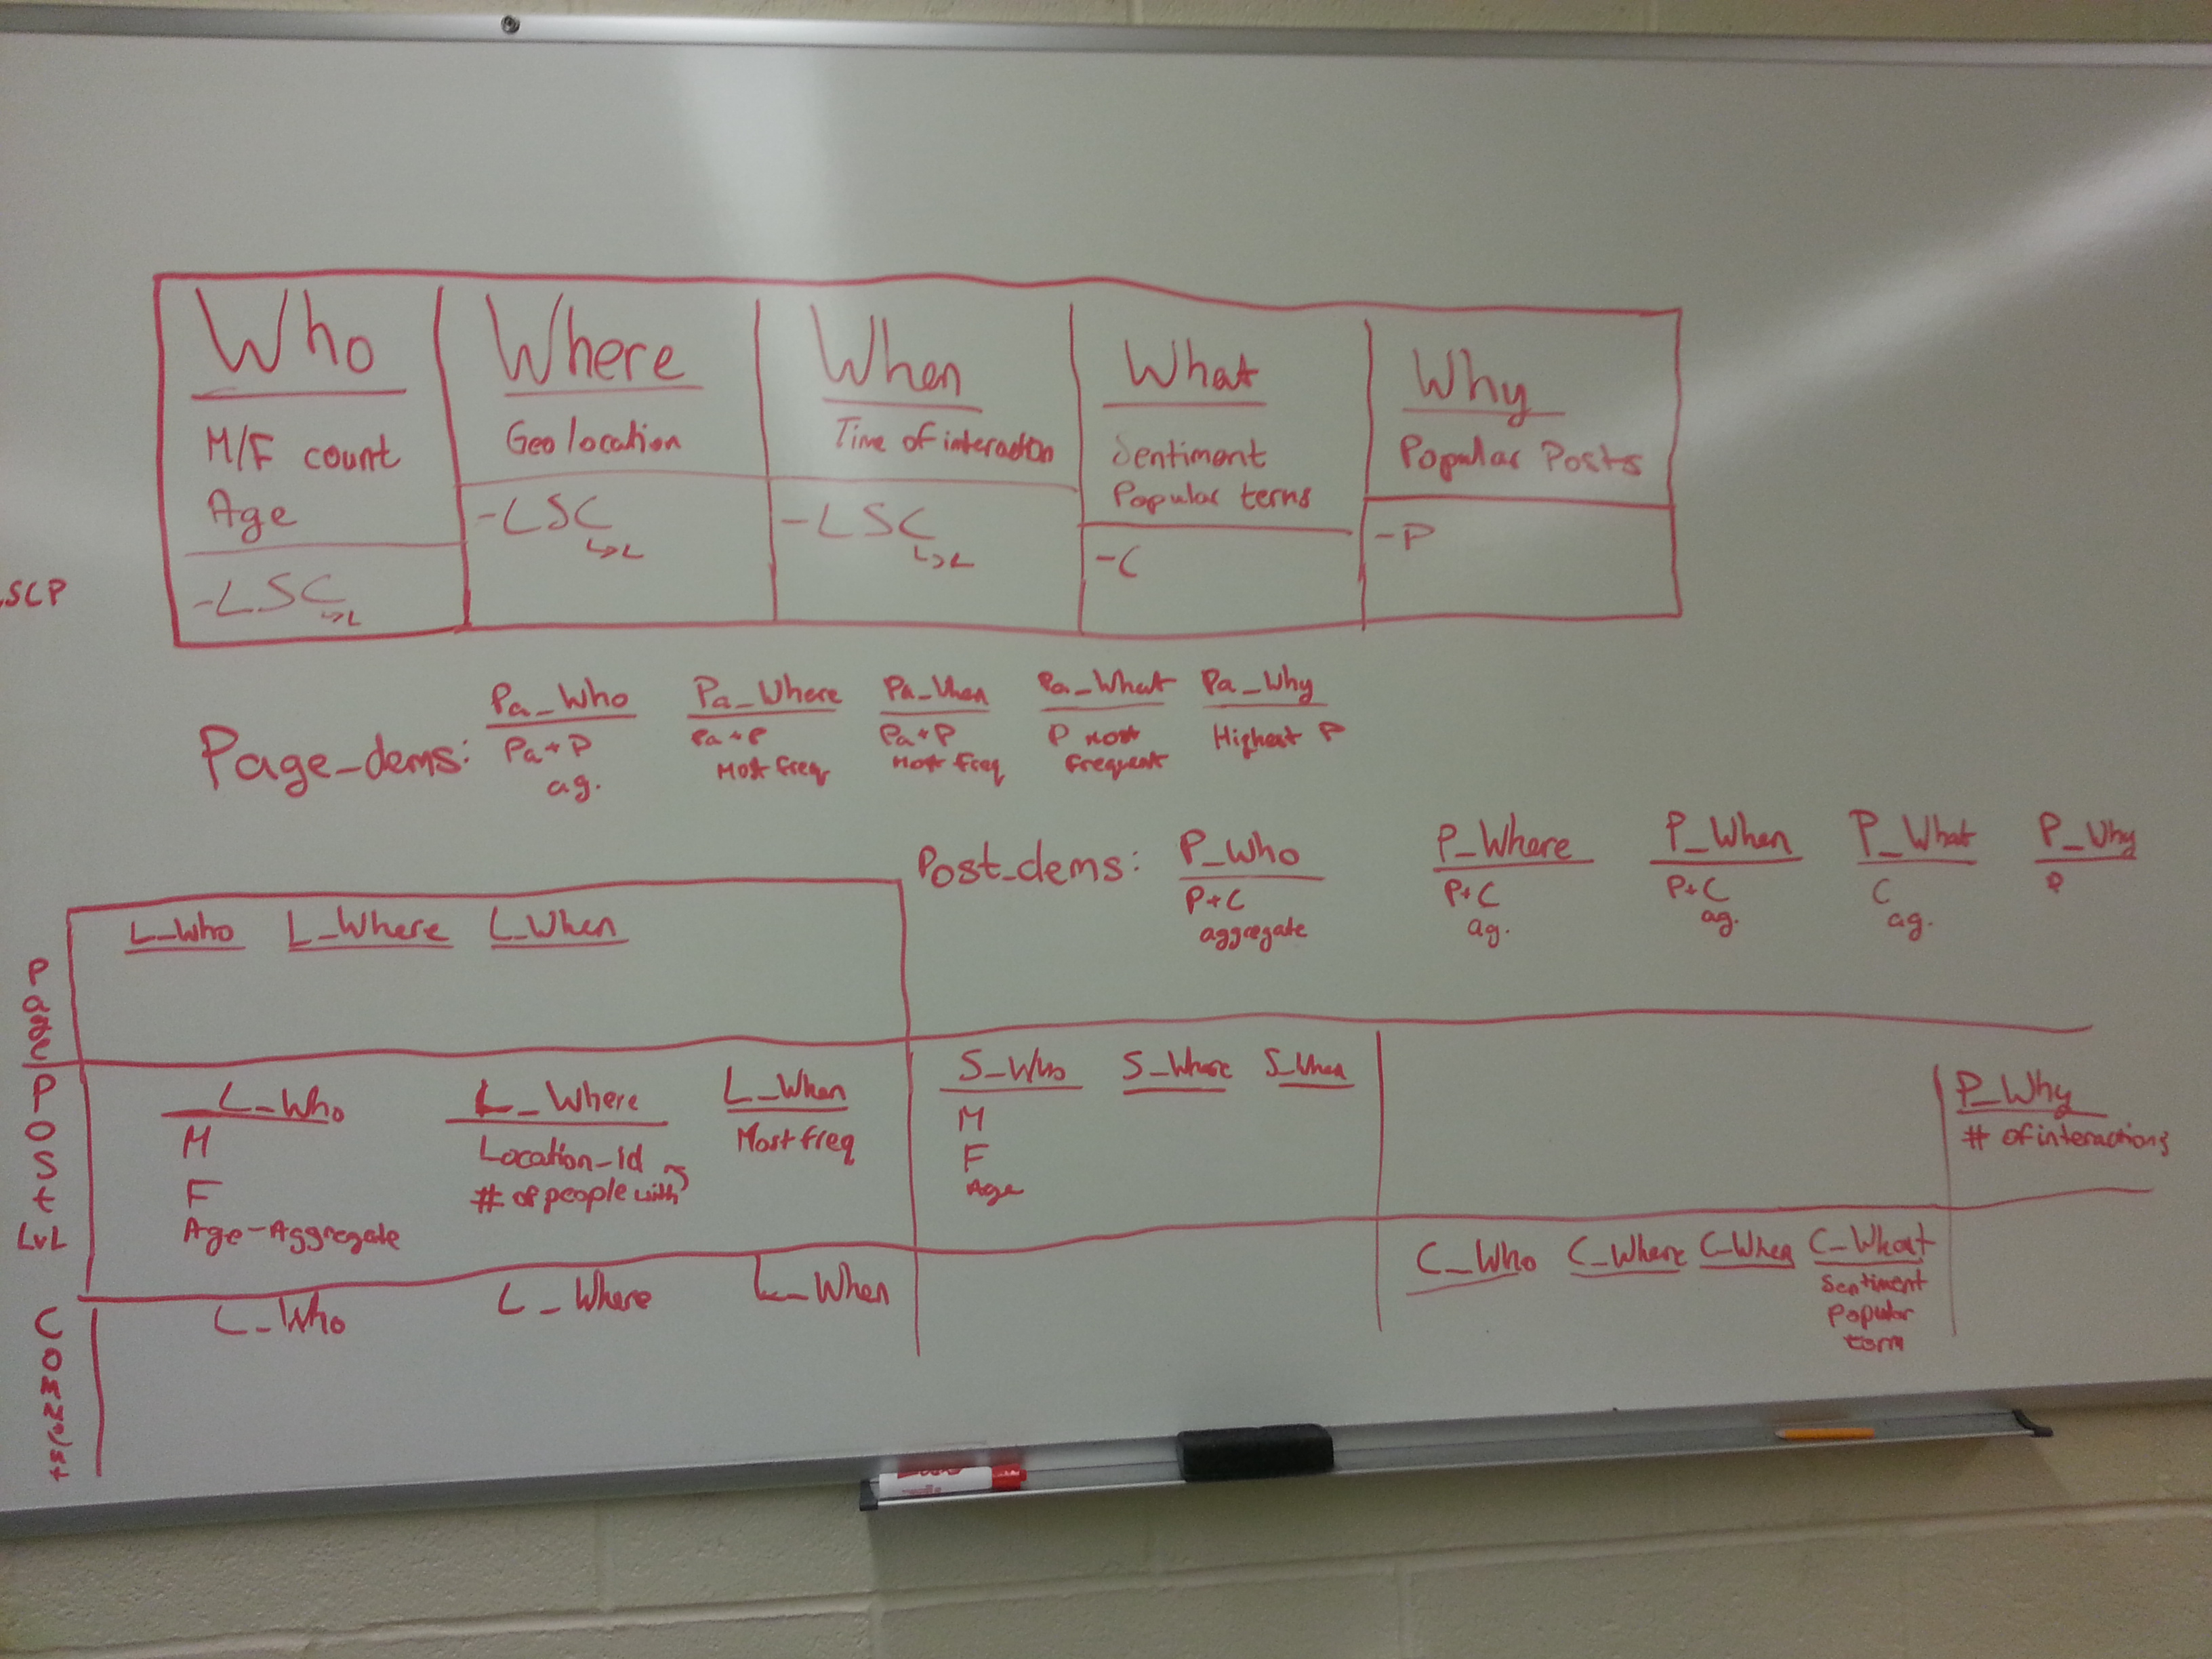 Who
M/F count
Age
-LSC
↳L
Where
Geolocation
-LSC
↳L
When
Time of interaction
-LSC
↳L
What
Sentiment
Popular terms
-C
Why
Popular Posts
-P
SCP
Page_dems:
Pa_Who
Pa+P
ag.
Pa_Where
Pa+P
Most freq
Pa_When
Pa+P
Most freq
Pa_What
P most
frequent
Pa_Why
Highest P
Post_dems:
P_Who
P+C
aggregate
P_Where
P+C
ag.
P_When
P+C
ag.
P_What
C
ag.
P_Why
P
Page
L_Who L_Where L_When
Post
LvL
L_Who
M
F
Age-Aggregate
L_Where
Location-id
# of people with
L_When
Most freq
S_Who S_Where S_When
M
F
Age
P_Why
# of interactions
L_Who L_Where L_When
C_Who C_Where C_When C_What
Sentiment
Popular
term